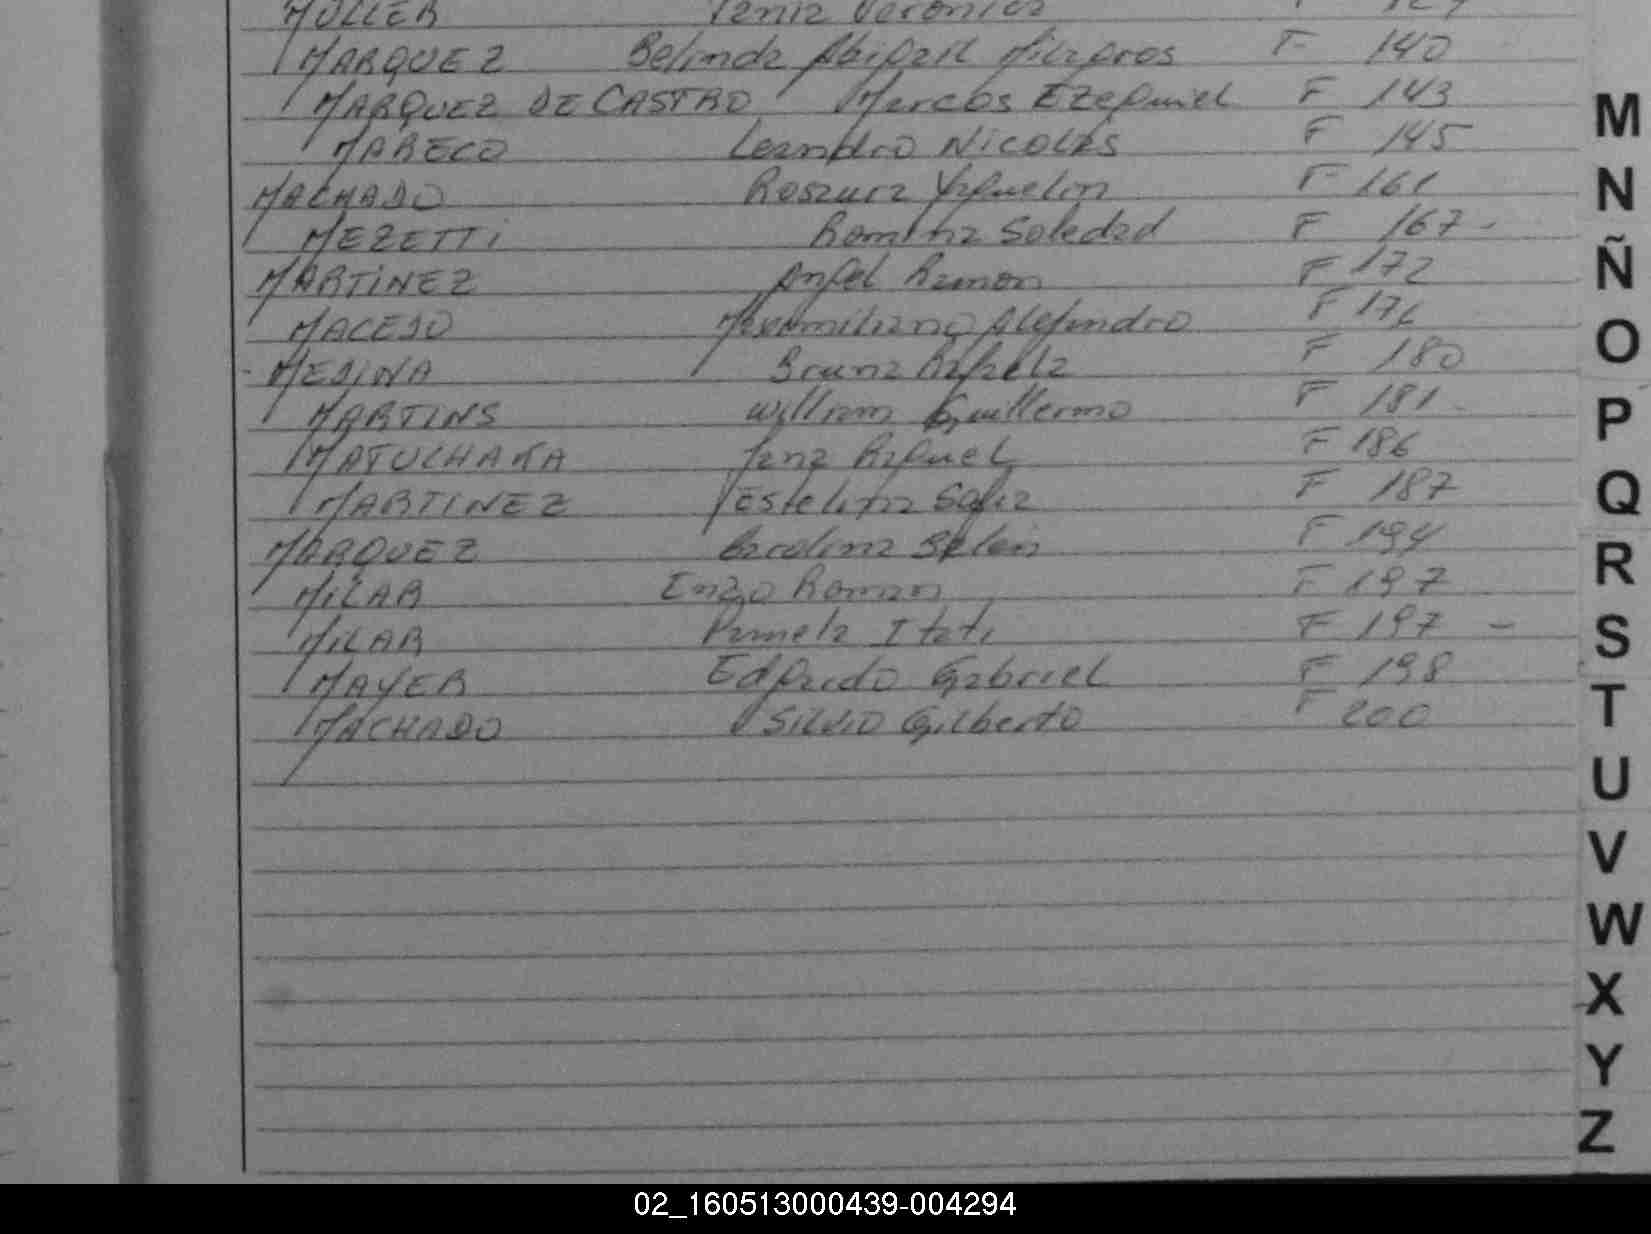 MULLER Tania Veronica F 129
MARQUEZ Belinda Abigail Milagros F 140
MARQUEZ DE CASTRO Marcos Ezequiel F 143
MARECO Leandro Nicolás F 145
MACHADO Rosaura Yaquelin F 161
MEZETTI Romina Soledad F 167-
MARTINEZ Angel Ramon F 172
MACEDO Maximiliano Alejandro F 176
MEDINA Bruna Rafaela F 180
MARTINS William Guillermo F 181
MATULHAKA Raquel F 186
MARTINEZ Estelina Sofia F 187
MARQUEZ Carolina Belen F 194
MILAR Enzo Roman F 197
MILAR Pamela Itati F 197 -
MAYER Edgardo Gabriel F 198
MACHADO Silvio Gilberto F 200
M
N
Ñ
O
P
Q
R
S
T
U
V
W
X
Y
Z
02_160513000439-004294